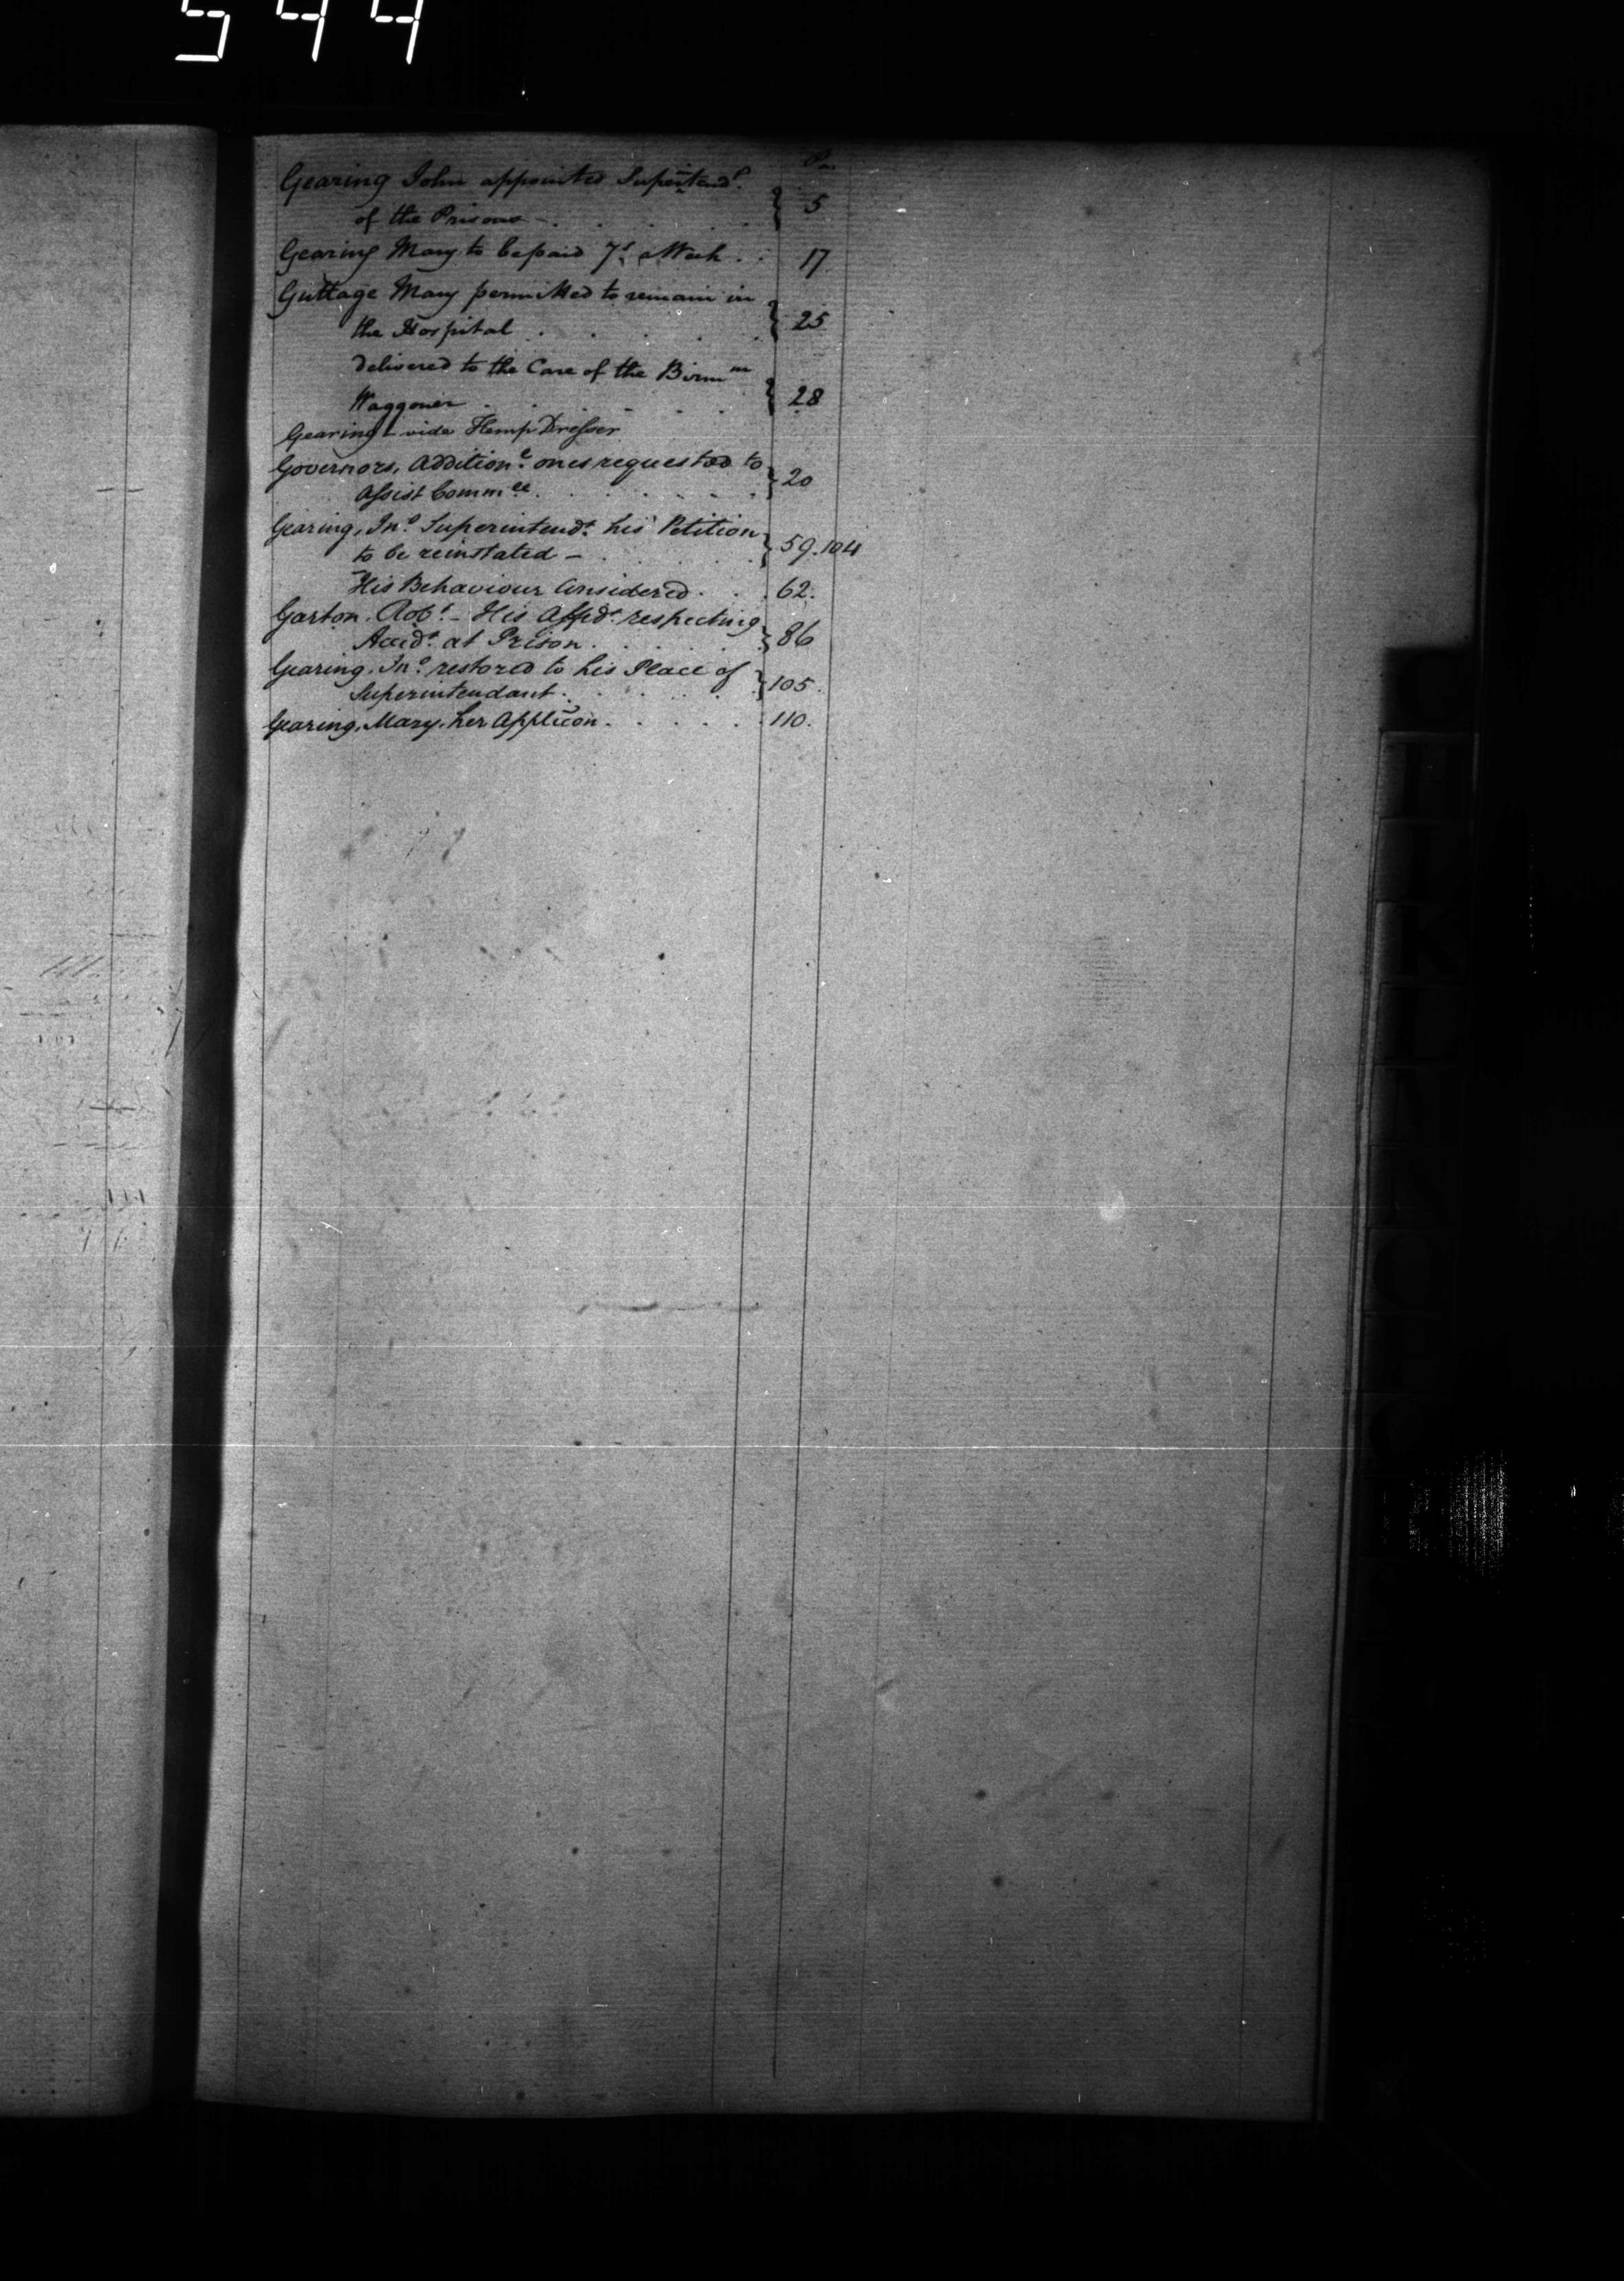 544
Pa.
Gearing John appointed Supeñtendt.
of the Prisons - . . . . } 5
Gearing Mary to be paid 7s. a Week . . 17
Guttage Mary permitted to remain in
the Hospital . . . . . } 25
delivered to the Care of the Birmm
Waggoner . . . . . } 28
Gearing - vide Hemp Dresser
Governors, Additionl. ones requested to
Assist Commee. . . . . . } 20
Gearing, Jno. Superintendt. his Petition
to be reinstated - . . . . } 59.104
His Behaviour Considered . . . 62.
Garton, Robt. - His Affidt. respecting
Accidt. at Prison . . . . } 86
Gearing, Jno. restored to his Place of
Superintendant . . . . } 105.
Gearing, Mary, her Applicon . . . . . 110.
H
I
K
L